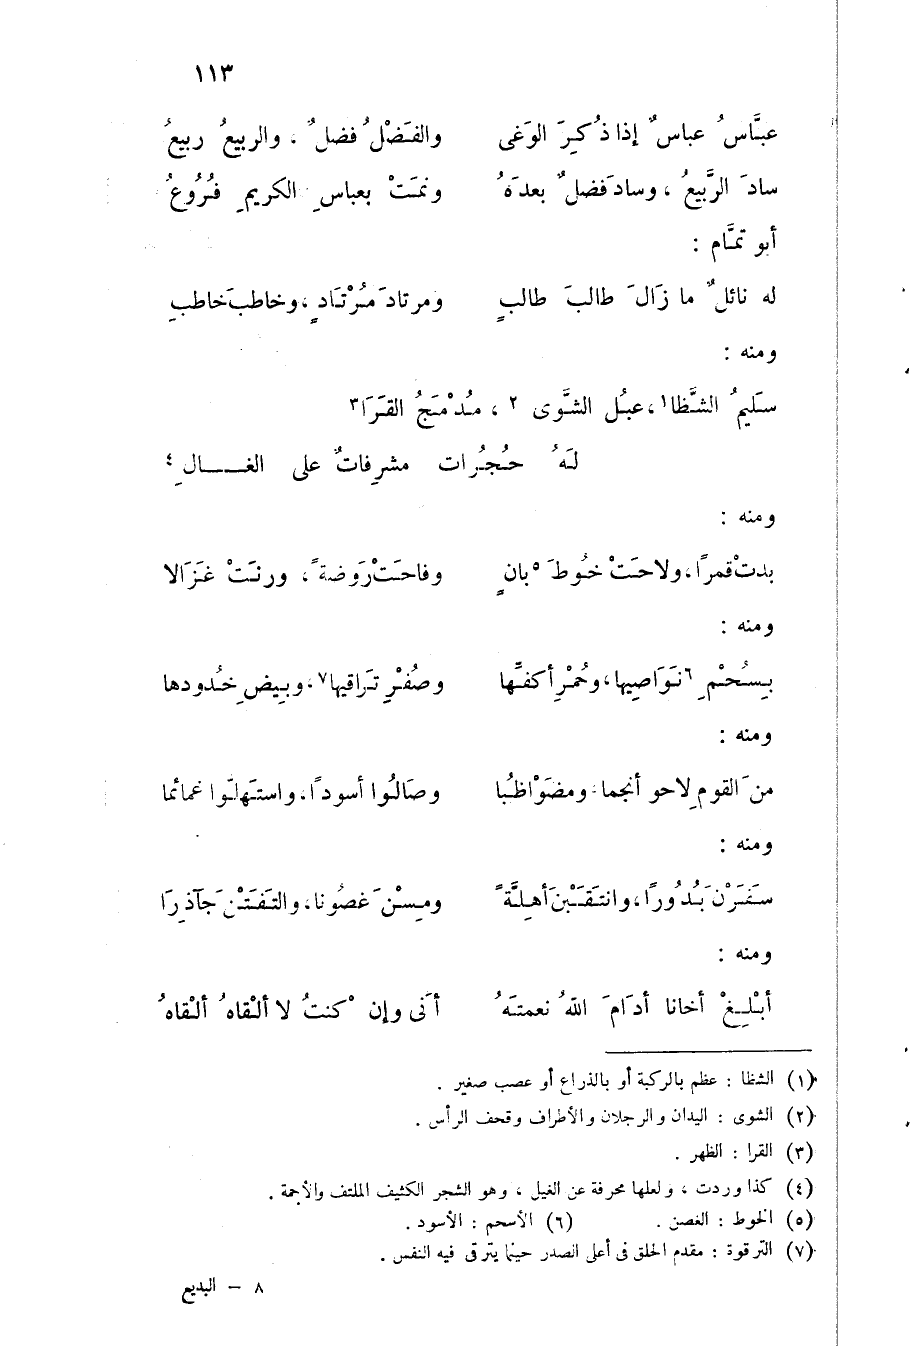 ١١٣
عبَّاسُ عباسٌ إذا ذُكِرَ الوَغى والفَضْلُ فضلٌ ، والربيعُ ربيعُ
سادَ الرَّبيعُ ، وسادَ فضلٌ بعدَهُ ونمَتْ بعباسِ الكريمِ فُرُوعُ
أبو تمَّام :
له نائلٌ ما زَالَ طالبَ طالبٍ ومرتادَ مُرْتَادٍ ، وخاطبَ خاطبِ
ومنه :
سَليمُ الشَّظا١ ، عبْل الشَّوى ٢ ، مُدْمَجُ القَرَا٣
لَهُ حُجُرات مشرِفاتٌ على الغــالِ ٤
ومنه :
بدتْ قمرًا ، ولاحَتْ خُوطَ ٥ بانٍ وفاحَتْ رَوضةً ، ورنَتْ غَزَالا
ومنه :
بِسُحْمِ ٦ نَوَاصِيها ، وحُمْرِ أكفِّها وصُفْرِ تَرَاقيها ٧ ، وبِيضِ خُدودها
ومنه :
منَ القومِ لاحو أنجما ، ومضَوْا ظُبا وصَالُوا أسودًا ، واستهلّوا غمائما
ومنه :
سَفَرْنَ بُدُورًا ، وانتَقَبْنَ أهِلَّةً ومِسْنَ غصُونا ، والتَفَتْنَ جَآذِرَا
ومنه :
أبْلِغْ أخانا أدَامَ اللهُ نعمتَهُ أنَى وإن كنتُ لا ألْقاهُ ألْقاهُ
(١) الشظا : عظم بالركبة أو بالذراع أو عصب صغير .
(٢) الشوى : اليدان والرجلان والأطراف وقحف الرأس .
(٣) القرا : الظهر .
(٤) كذا وردت ، ولعلها محرفة عن الغيل ، وهو الشجر الكثيف الملتف والأجمة .
(٥) الخوط : الغصن . (٦) الأسحم : الأسود .
(٧) الترقوة : مقدم الحلق فى أعلى الصدر حيثما يترقى فيه النفس .
٨ – البديع